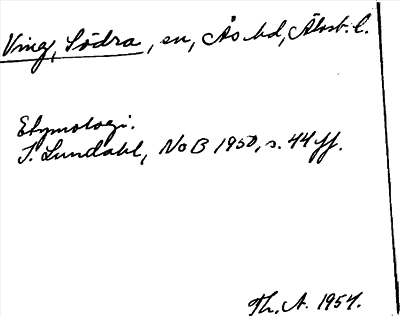 Ving, Södra, en, Ås hd, Älvsb. l.
Etymologi.
I. Lundahl, NoB 1950, s. 44 ff.
Th. A. 1954.